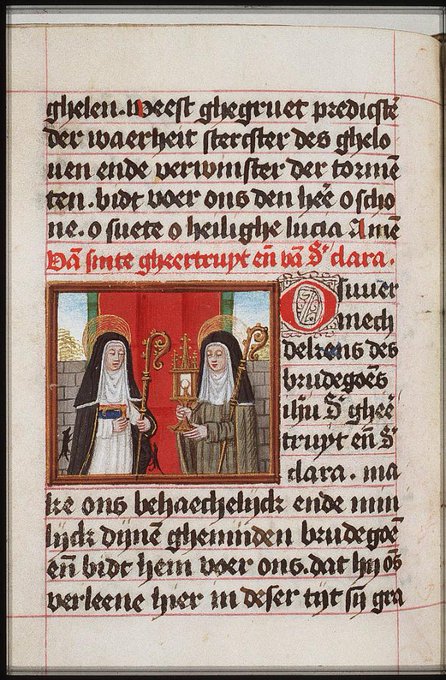 ghelen. weest ghegruet predicste
der waerheit stercster des ghelo
uen ende verwinster der tormē
ten. bidt voer ons den heē o scho
ne. o suete o heilighe lucia Amē
Vā sinte gheertruyt eñ vā Sᵗ clara.
O suuer
mech
dekens des
brudegoēs
ihū Sᵗ gheē
truyt eñ Sᵗ
clara. ma
ke ons behaechelijck ende min
lijck dijnē gheminden brudegoē
eñ bidt hem voer ons. dat hij ōs
verleene hier in deser tijt sij gra